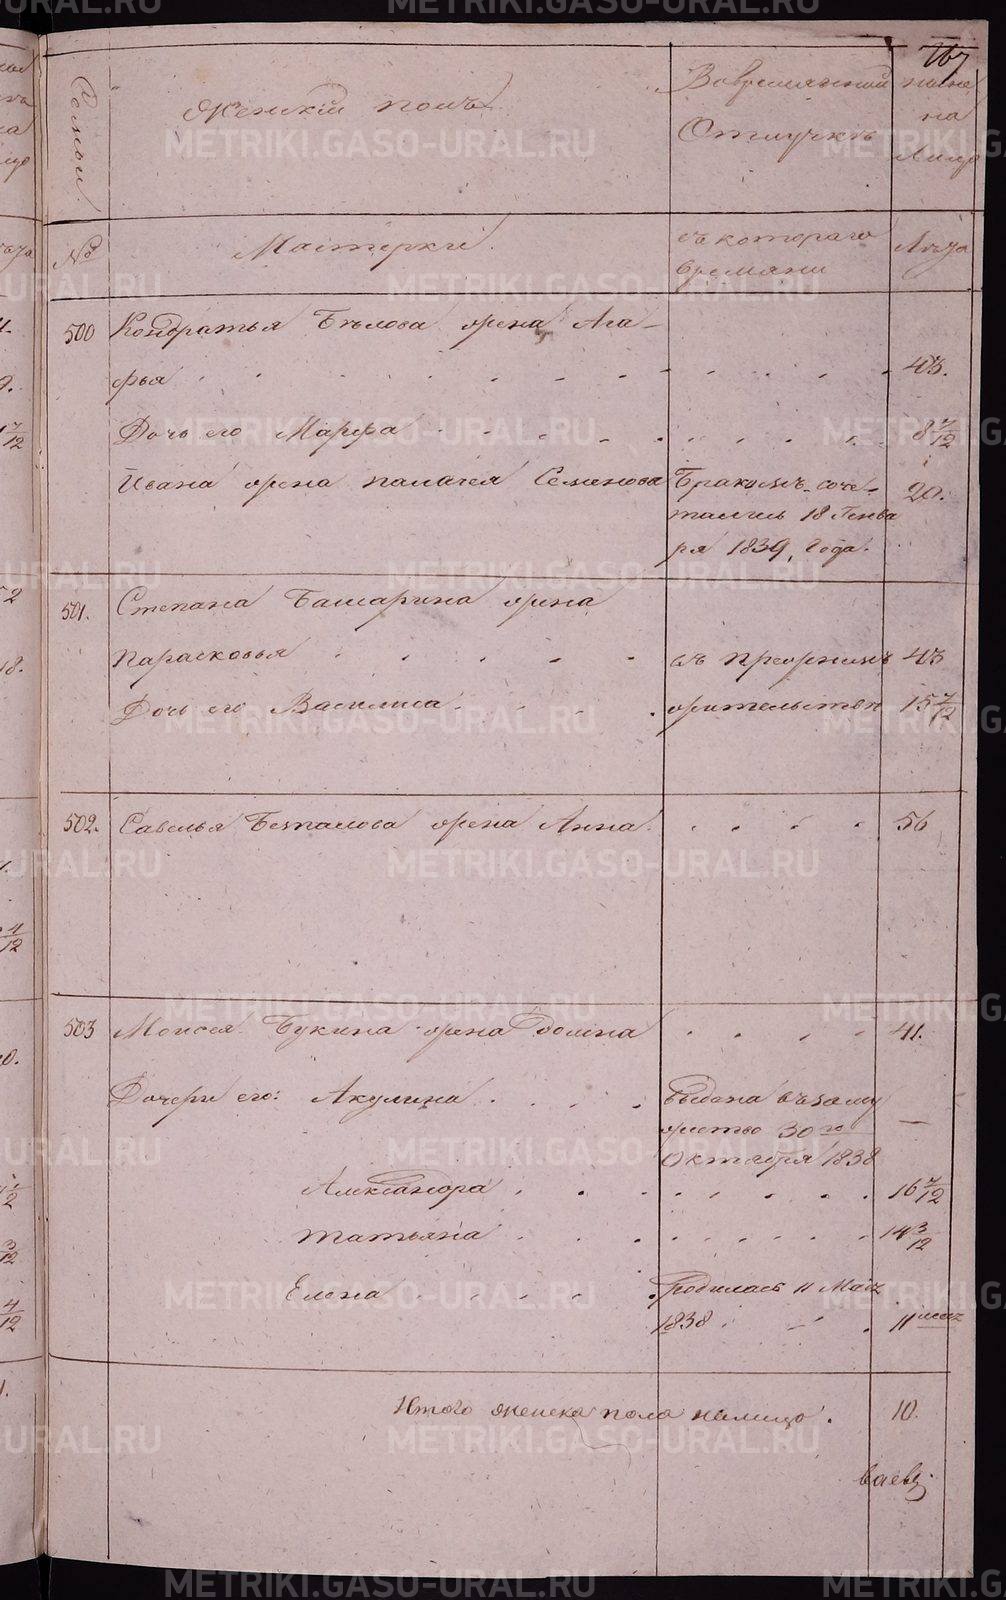 167
Семьи
Женскій полъ
Вовременной
Отлучкѣ
ныне
на
лицо
№
Мастерскiе.
съ котораго
времяни
Лѣта
500 Кондратья Бѣлова жена Ага-
фья 43.
Дочь его Марфа 8 7/12
Ивана жена Палагея Семенова
Бракомъ соче-
тались 18 Генва
ря 1839 года.
20.
501. Степана Башарина жена
Парасковья 43
Дочь его Василиса 15 7/12
въ
жительствѣ
502. Савелья Безпалова жена Анна 56
503 Моисея Букина жена Домна 41.
Дочери его: Акулина —
Выдана въ заму
жество 30го
Октября 1838
Александра 16 7/12
Татьяна 14 3/12
Елена
Родилась 11 Мар
1838
11 мец
Итого женска пола налицо. 10.
METRIKI.GASO-URAL.RU